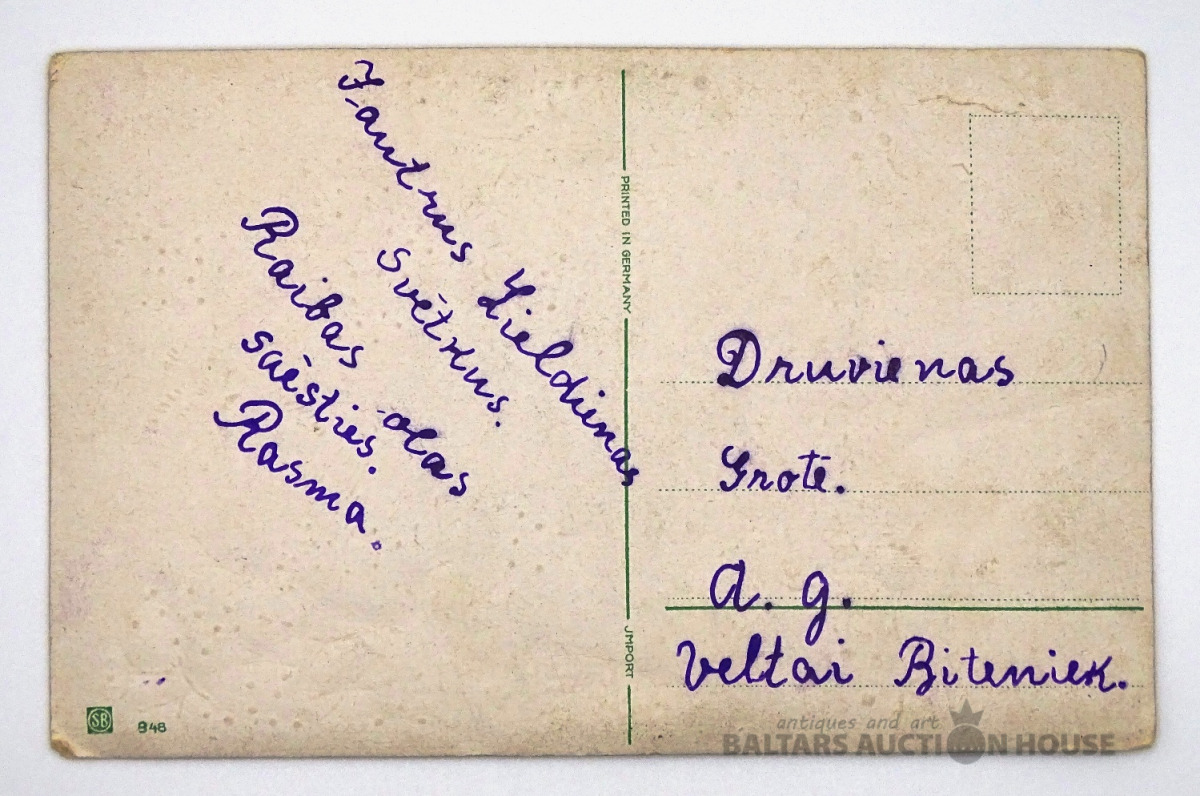 Jautrus Lieldienas
svētkus.
Raibas olas
saēsties.
Rasma.
PRINTED IN GERMANY
JMPORT
Druvienas
Grotē.
A. g.
Veltai Biteniek.
SB
948
antiques and art
BALTARS AUCTION HOUSE